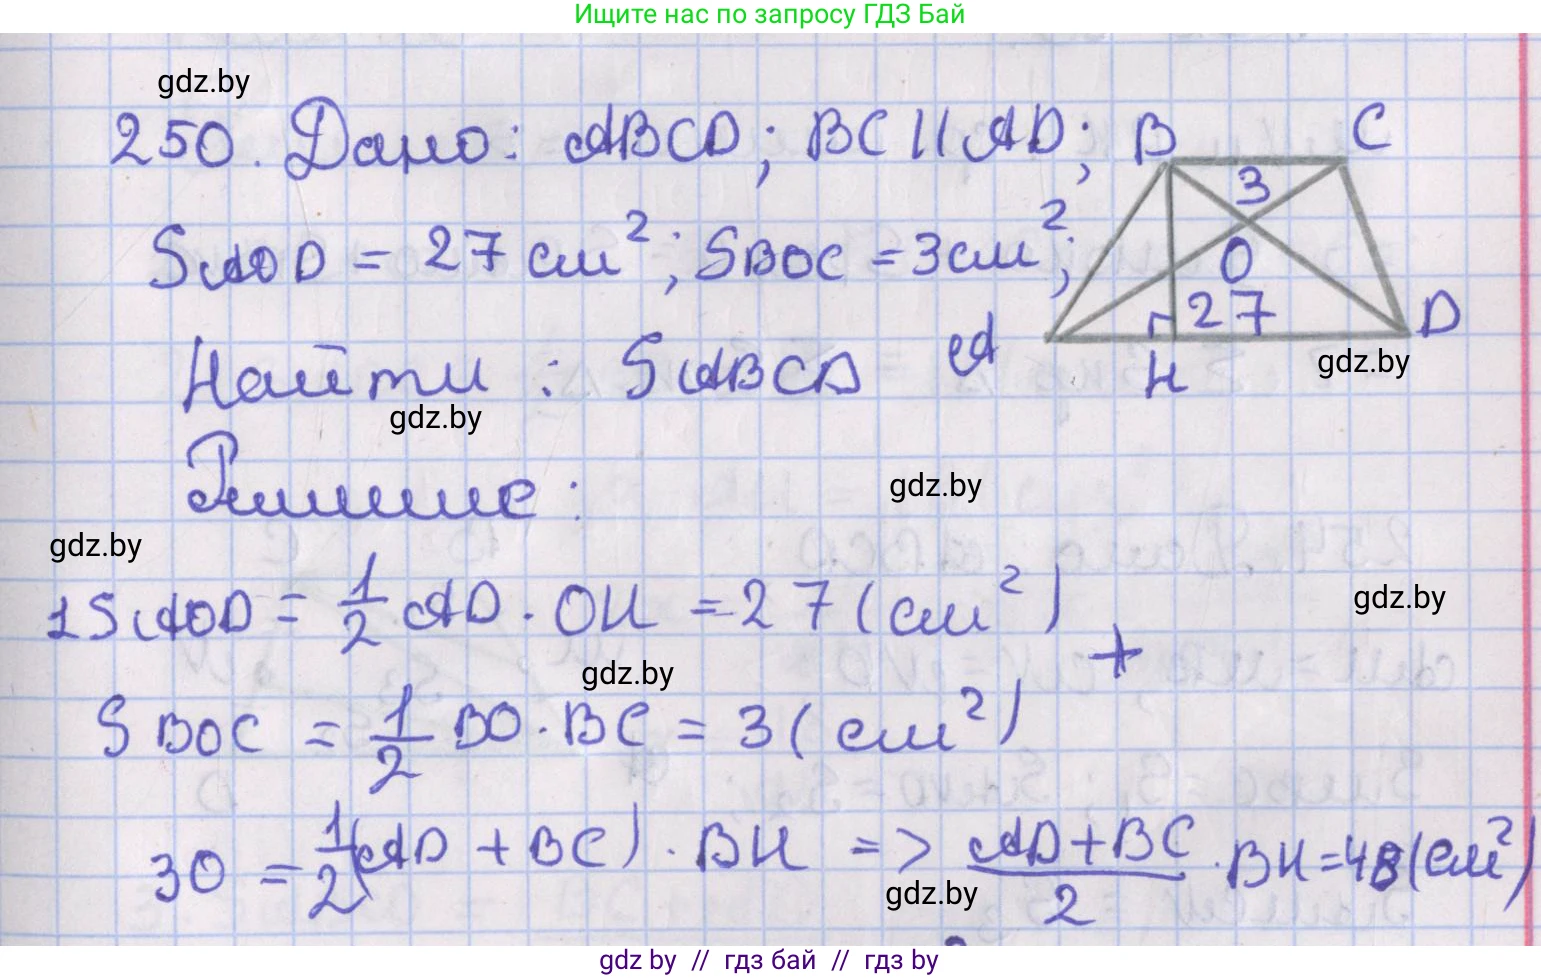 Ищите нас по запросу ГДЗ Бай
gdz.by
250. Дано: ABCD; BC || AD; B C
3
SAOD = 27 см²; SBOC = 3 см²;
O
27 D
Найти: SABCD A H
gdz.by
gdz.by
Решение:
gdz.by
gdz.by
1 SAOD = 1/2 AD · OH = 27 (см²)
gdz.by
+
gdz.by
SBOC = 1/2 BO · BC = 3 (см²)
30 = 1/2 (AD + BC) · BH => AD + BC / 2 · BH = 48 (см²)
gdz.by
gdz by // гдз бай // gdz by